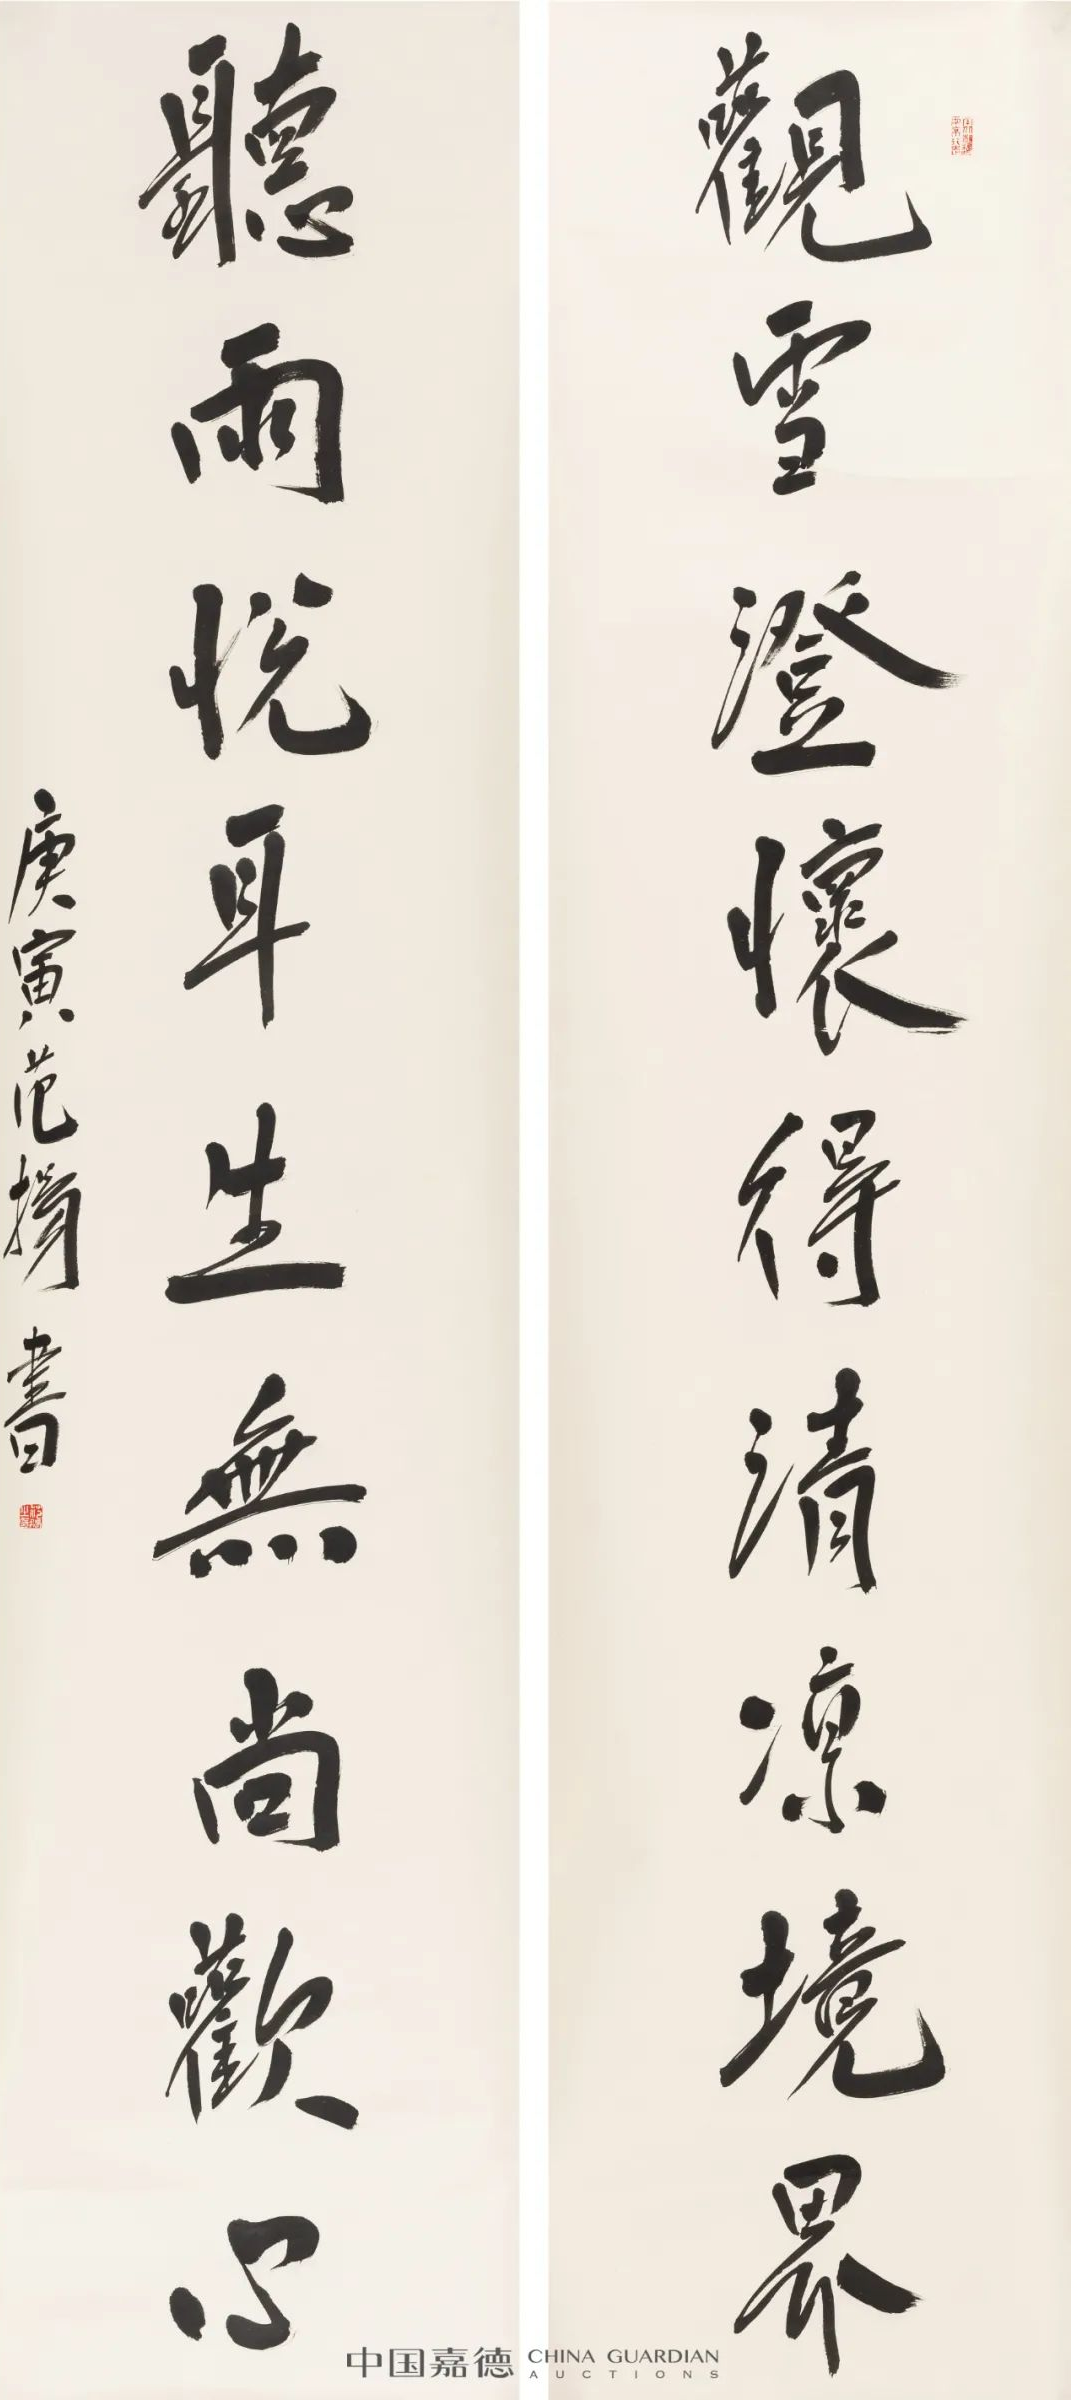 觀雪澄懷得清凉境界
聽雨悦耳生無尚歡心
庚寅范擣書
中国嘉德 CHINA GUARDIAN
AUCTIONS